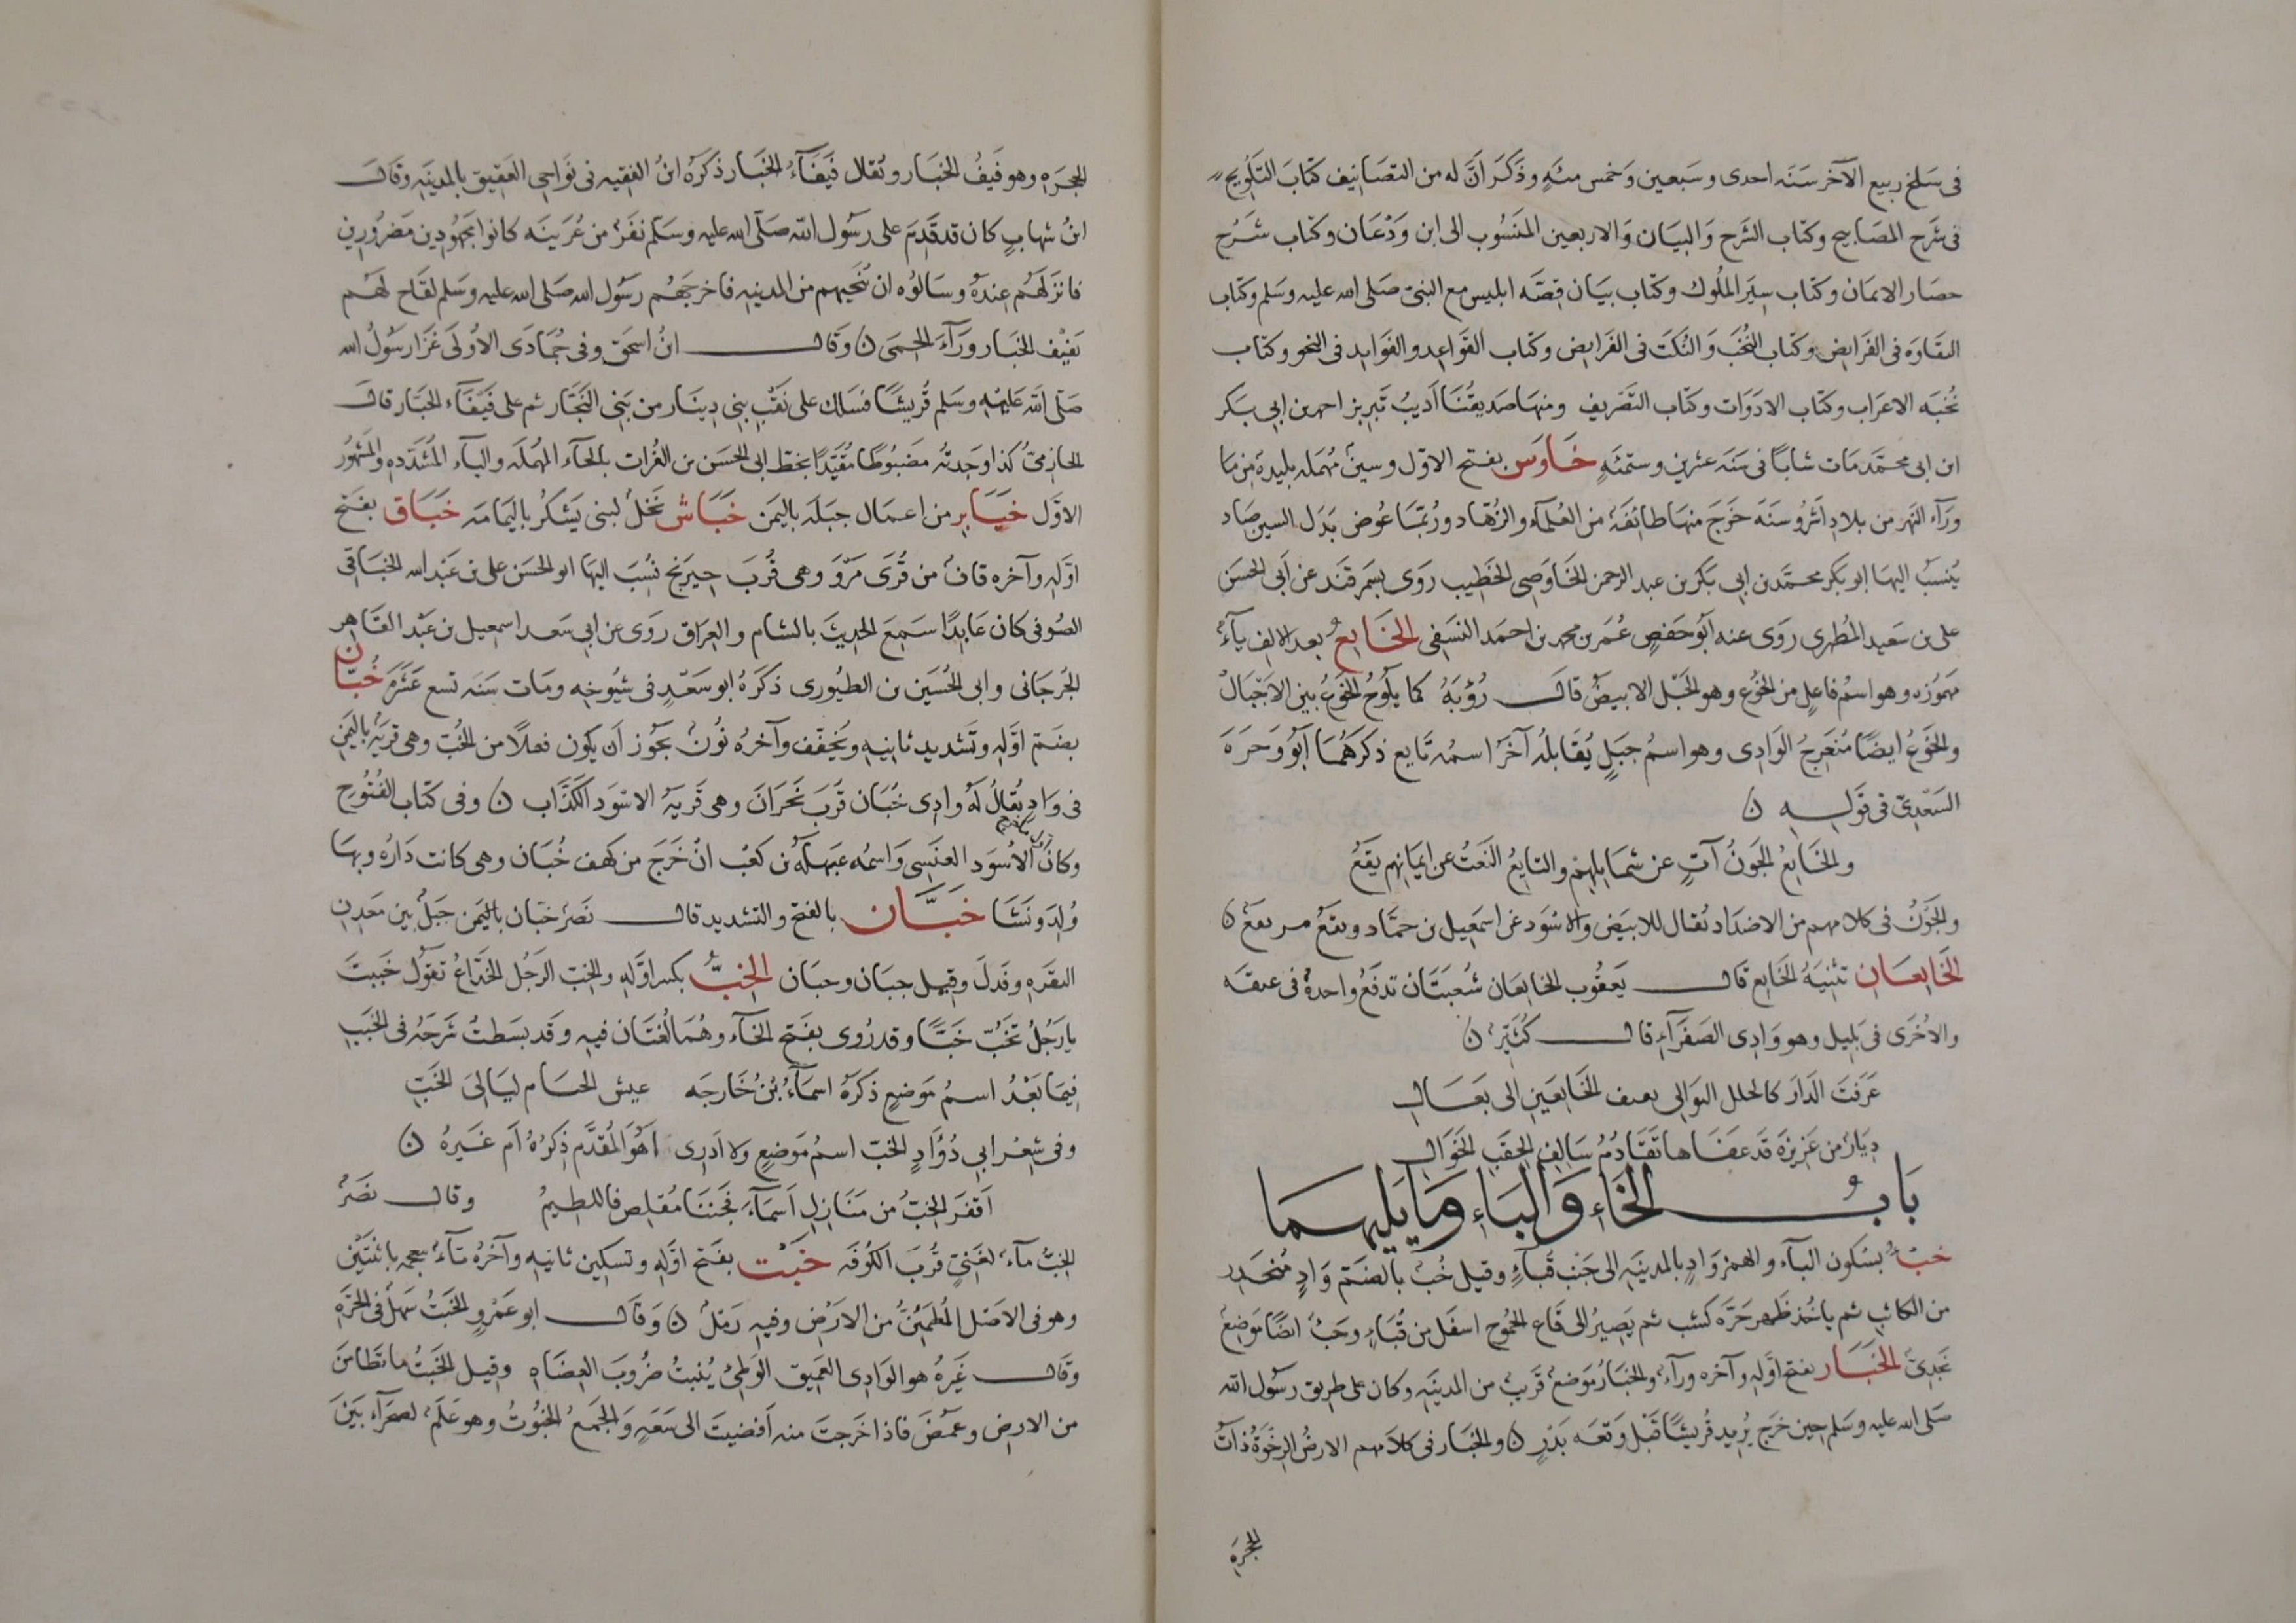 فى سَلخ ربيع الآخر سَنَه احدى وسَبعين وَخمس مئةٍ وذَكَرَ انَّ له من التصَانيف كتَابَ التَلويح
فى شَرح المصَابيح وكتاب الشَرح وَالبيَان وَالاربعين المنسُوب الى ابن وَدْعَان وكتاب شَرح
حصَار الايمَان وكتاب سِيَر المُلوك وكتاب بيَان قصَّه ابليس مع النبىّ صَلى الله عليه وسَلم وكتاب
النقَاوَه فى الفَرايض وكتاب النُخَب وَالنُكَت فى الفَرايض وكتاب القوَاعِد والفَوَايد فى النحو وكتاب
نُخبَه الاعرَاب وكتاب الادَوَات وكتاب التَصَريف ومنهَا صَديقُنَا اَديبُ تَبريز احمد بن ابى بَكر
ابن ابى محمَّد مَات شابًا فى سَنَه عشرين وستمئَهٍ خَاوَس بفتح الاوّل وسينٌ مُهمَله بليدةٌ من مَا
ورَآء النَهر من بلادِ اشرُوسَنَه خَرَجَ منهَا طائفَةٌ من العُلمآء والزُهّاد ورُبّمَا عُوض بَدَل السين صَاد
يُنسبُ اليهَا ابو بَكر محمَّد بن ابى بَكر بن عبد الرحمن الخَاوَصِى الخَطِيب رَوَى بسَمرقَند عن اَبى الحسَن
على بن سَعيد المُطهرى رَوَى عنه اَبُو حَفصٍ عُمَر بن محمد بن احمَد النسَفى الخَايعُ بعد الالِف يآءٌ
مَهمُوزه وهو اسمُ فَاعِلٍ من الخَوْع وهو الجَبَل الابيضُ قالَ رُؤبَهُ كما يَلُوحُ الخَوْعُ بين الاَجبَالْ
والخَوْعُ ايضًا مُنعَرجُ الوَادِى وهو اسمُ جبَلٍ يُقَابلُه آخَر اسمُه نَايع ذكَرَهُمَا اَبُو وَجزَة
السَعْدِىّ فى قَولِه ن
والخَايعُ الجَونُ آتٍ عن شمَايلِهِم والنايعُ النَعتُ عن ايمانِهم يَقَعُ
والجَونُ فى كلامهم من الاضدَاد يُقال للابيَض والاسْوَد عن اسمَعِيل بن حمَّاد
الخَايعَانِ تثنيَةُ الخَايع قَال يَعقُوب الخايعَان شُعبَتَان تدفَعُ واحدةٌ فى غيقَه
والاُخرَى فى يَليل وهو وَادِى الصَفرَآءِ قال كُثَيّرٌ ن
عَرَفتَ الدَارَ كالحلل البَوَالى بفيف الخَايعَينِ الى بَعَالِ
ديَارٌ من عَزِيزَةَ قَد عفَاها تَقَادُمُ سَالِفِ الحِقَبِ الخوَالِ
بَابُ الخَاءِ وَالبَاءِ وَمَا يَليهِمَا
خبْءٌ بسُكون البآء والهمز وَادٍ بالمدينَه الى جَنب قُباءٍ وقيل خُبٌ بالضَم وَادٍ مُنحَدِر
من الكاثب ثم ياخُذ ظَهرَ حَرّة كشب ثم يَصِيرُ الى قَاع الجُموح اسفَل من قُبَاءٍ وخَبْءٌ ايضًا مَوَضِعٌ
نَجدِىٌ الخَبَار بفتح اوَّله وآخره ورآءٌ والخبَارُ مَوَضعٌ قَريبٌ من المدينَه وكان على طريق رسُول الله
صَلى الله عليه وسَلم حِين خَرَج يُريد قُريشًا قَبْل وَقعَه بَدْرٍ ن والخبَار فى كلامهم الارضُ الرِخوَةُ ذاتُ
الجحرَه
الجحرَه وهو فَيفُ الخبَار ويُقال فَيفَآءُ الخبَار ذكَرَه ابنُ الفقيه فى نوَاحِى العَقِيق بالمدينَه وقَال
ابنُ شهابٍ كان قد قَدِمَ على رسُول الله صَلى الله عليه وسَلم نفَرٌ من عُرَينَه كانوا مجهُودِين مَضرُورِين
فانزَلَهُم عندَهُ وسَالُوه ان يُنحّيهم من المدينه فاخرجَهُم رسُول الله صَلى الله عليه وسَلم لقَاح لَهُم
بفَيْف الخبَار ورَآءَ الحمَى ن وقَال ابنُ اسحَق وفى جُمَادَى الاُولَى غَزَا رسُولُ الله
صَلى الله عَليْه وسَلم قُريشًا فسَلك على نَقْبِ بنى دِينَار من بَنِى النَجَّار ثم على فَيفَآء الخبَار قال
الحَازِمىّ كذا وَجدتُه مَضبُوطًا مقيّدًا بخَط ابى الحسَن بن الفُرات بالحآء المهمَله والبآء المُشَدّده والمَشهُورُ
الاوّل خَبَايِر من اعمَال جبلَه باليمَن خَبَاش نخلٌ لبنى يَشكُر باليمَامَه خَبَاق بفَتح
اوّله وآخره قافٌ من قُرَى مَرْوَ وهى قُربَ جِيرَنج نُسِبَ اليهَا ابو الحسَن على بن عَبْد الله الخبَاقى
الصُوفى كان عَابِدًا سَمِعَ الحدِيثَ بالشام والعرَاق روَى عن ابى سَعد اسمعيل بن عَبْد القَاهِر
الجُرجَانى وابى الحُسَين بن الطيُورى ذكَرَهُ ابو سَعْدٍ فى شيُوخِه ومَات سَنَه تسع عَشرَة خُبّان
بضَم اوّله وتَشديد ثانيهِ ويُخفّف وآخرُه نُونٌ يجُوز اَن يكُون فعلًا من الخُبّ وهى قَريَةٌ باليمَن
فى وَادٍ يُقالُ لَهُ وادِى خُبَان قُربَ نَجرَانَ وهى قَريَةُ الاسْوَد الكَذَّاب ن وفى كتاب الفُتُوح
وكانَ الاسْوَد العنَسِى وَاسمُه عَبهلَةُ بن كَعْب انْ خَرَجَ من كهف خُبَان وهى كانت دَارُه وبهَا
وُلِدَ ونَشَا خَبَّان بالفتح والتشديد قال نَصْرٌ خبَّان باليمَن جبَلٌ بين مَعدِن
النقَرَه وفَدكَ وقيل جبَان وحبَان الخِبُّ بكسر اوّله والخِبّ الرَجُل الخَدّاعُ تقُولُ خبِبتَ
يا رَجُلُ تخَبُّ خَبًّا وقد رُوى بفَتح الخآء وهُمَا لُغتَان فيهِ وقد بَسَطتُ شَرحَهُ فى الخَبِيبِ
فِيمَا بَعْدُ اسمُ مَوَضعٍ ذكَرَهُ اسمَآءُ بْنُ خَارجَه عيش الخيام ليَالِىَ الخَبّ
وفى شِعْرِ ابى دُؤَادٍ الخبّ اسمُ مَوَضعٍ ولا ادَرِى اَهُوَ المُقَدَّم ذِكرُهُ اَم غَيرُهُ ن
اَقفَر الخِبّ من مَنَازِلِ اَسمَآءَ فجَنبَا مُقلِصٍ فالظلِيمُ وقال نصْرٌ
الخِبُّ مآءٌ لغَنِىٍّ قُربَ الكُوفَه خَبْت بفَتح اوّله وتسكِين ثانيهِ وآخرُه تآءٌ معجمه باثنَتَيْن
وهو فى الاصْل المُطمَئنُّ من الارَضِ وفيهِ رَملٌ ن وقَالَ ابو عَمْرٍو الخَبتُ سَهلٌ فى الحَرَّه
وقَال غَيرُهُ هو الوَادِى العَمِيق الوَطِئُ يُنبتُ ضُروبَ العِضَاهِ وقيل الخَبْتُ ما تَطَامَنَ
من الارضِ وغَمضَ فاذا خَرجتَ منه اَفضيتَ الى سَعَهٍ وَالجَمعُ الخبُوتُ وهو عَلَمٌ لصحرَآءَ بَيْنَ